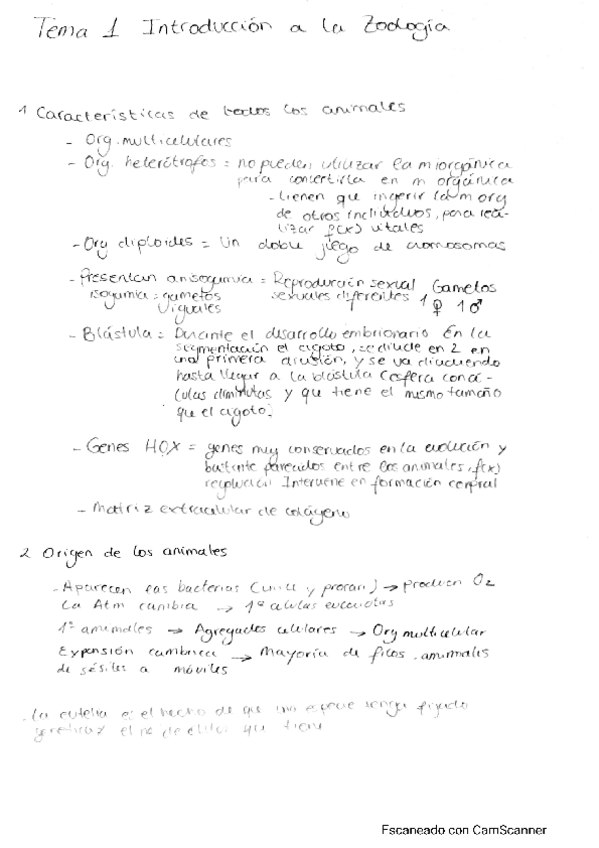 Tema 1 Introducción a la Zoología
1 Características de todos los animales
- Org. multicelulares
- Org. heterótrofos = no pueden utilizar la m iorgánica
para convertirla en m orgánica
- tienen que ingerir la m org
de otros individuos, para rea-
lizar f(x) vitales
- Org diploides = Un doble juego de cromosomas
- Presentan anisogamia = Reproducción sexual Gametos
isogamia = gametos sexuales diferentes 1♀ 1♂
iguales
- Blástula = Durante el desarrollo embrionario En la
segmentación el cigoto, se divide en 2 en
una primera división, y se va dividiendo
hasta llegar a la blástula (esfera con cé-
lulas diminutas y que tiene el mismo tamaño
que el cigoto.
- Genes HOX = genes muy conservados en la evolución y
bastante parecidos entre los animales, f(x)
Interviene en formación
- Matriz extracelular de colágeno
2 Origen de los animales
- Aparecen las bacterias (unice y procari) → Producen O2
La Atm cambia → 1ª células eucariotas
1º animales → Agregados celulares → Org multicelular
Expansión cámbrica → Mayoría de filos. animales
de sésiles a móviles
. La eutelia es el hecho de que una especie tenga fijado
el nº de que tiene
Escaneado con CamScanner